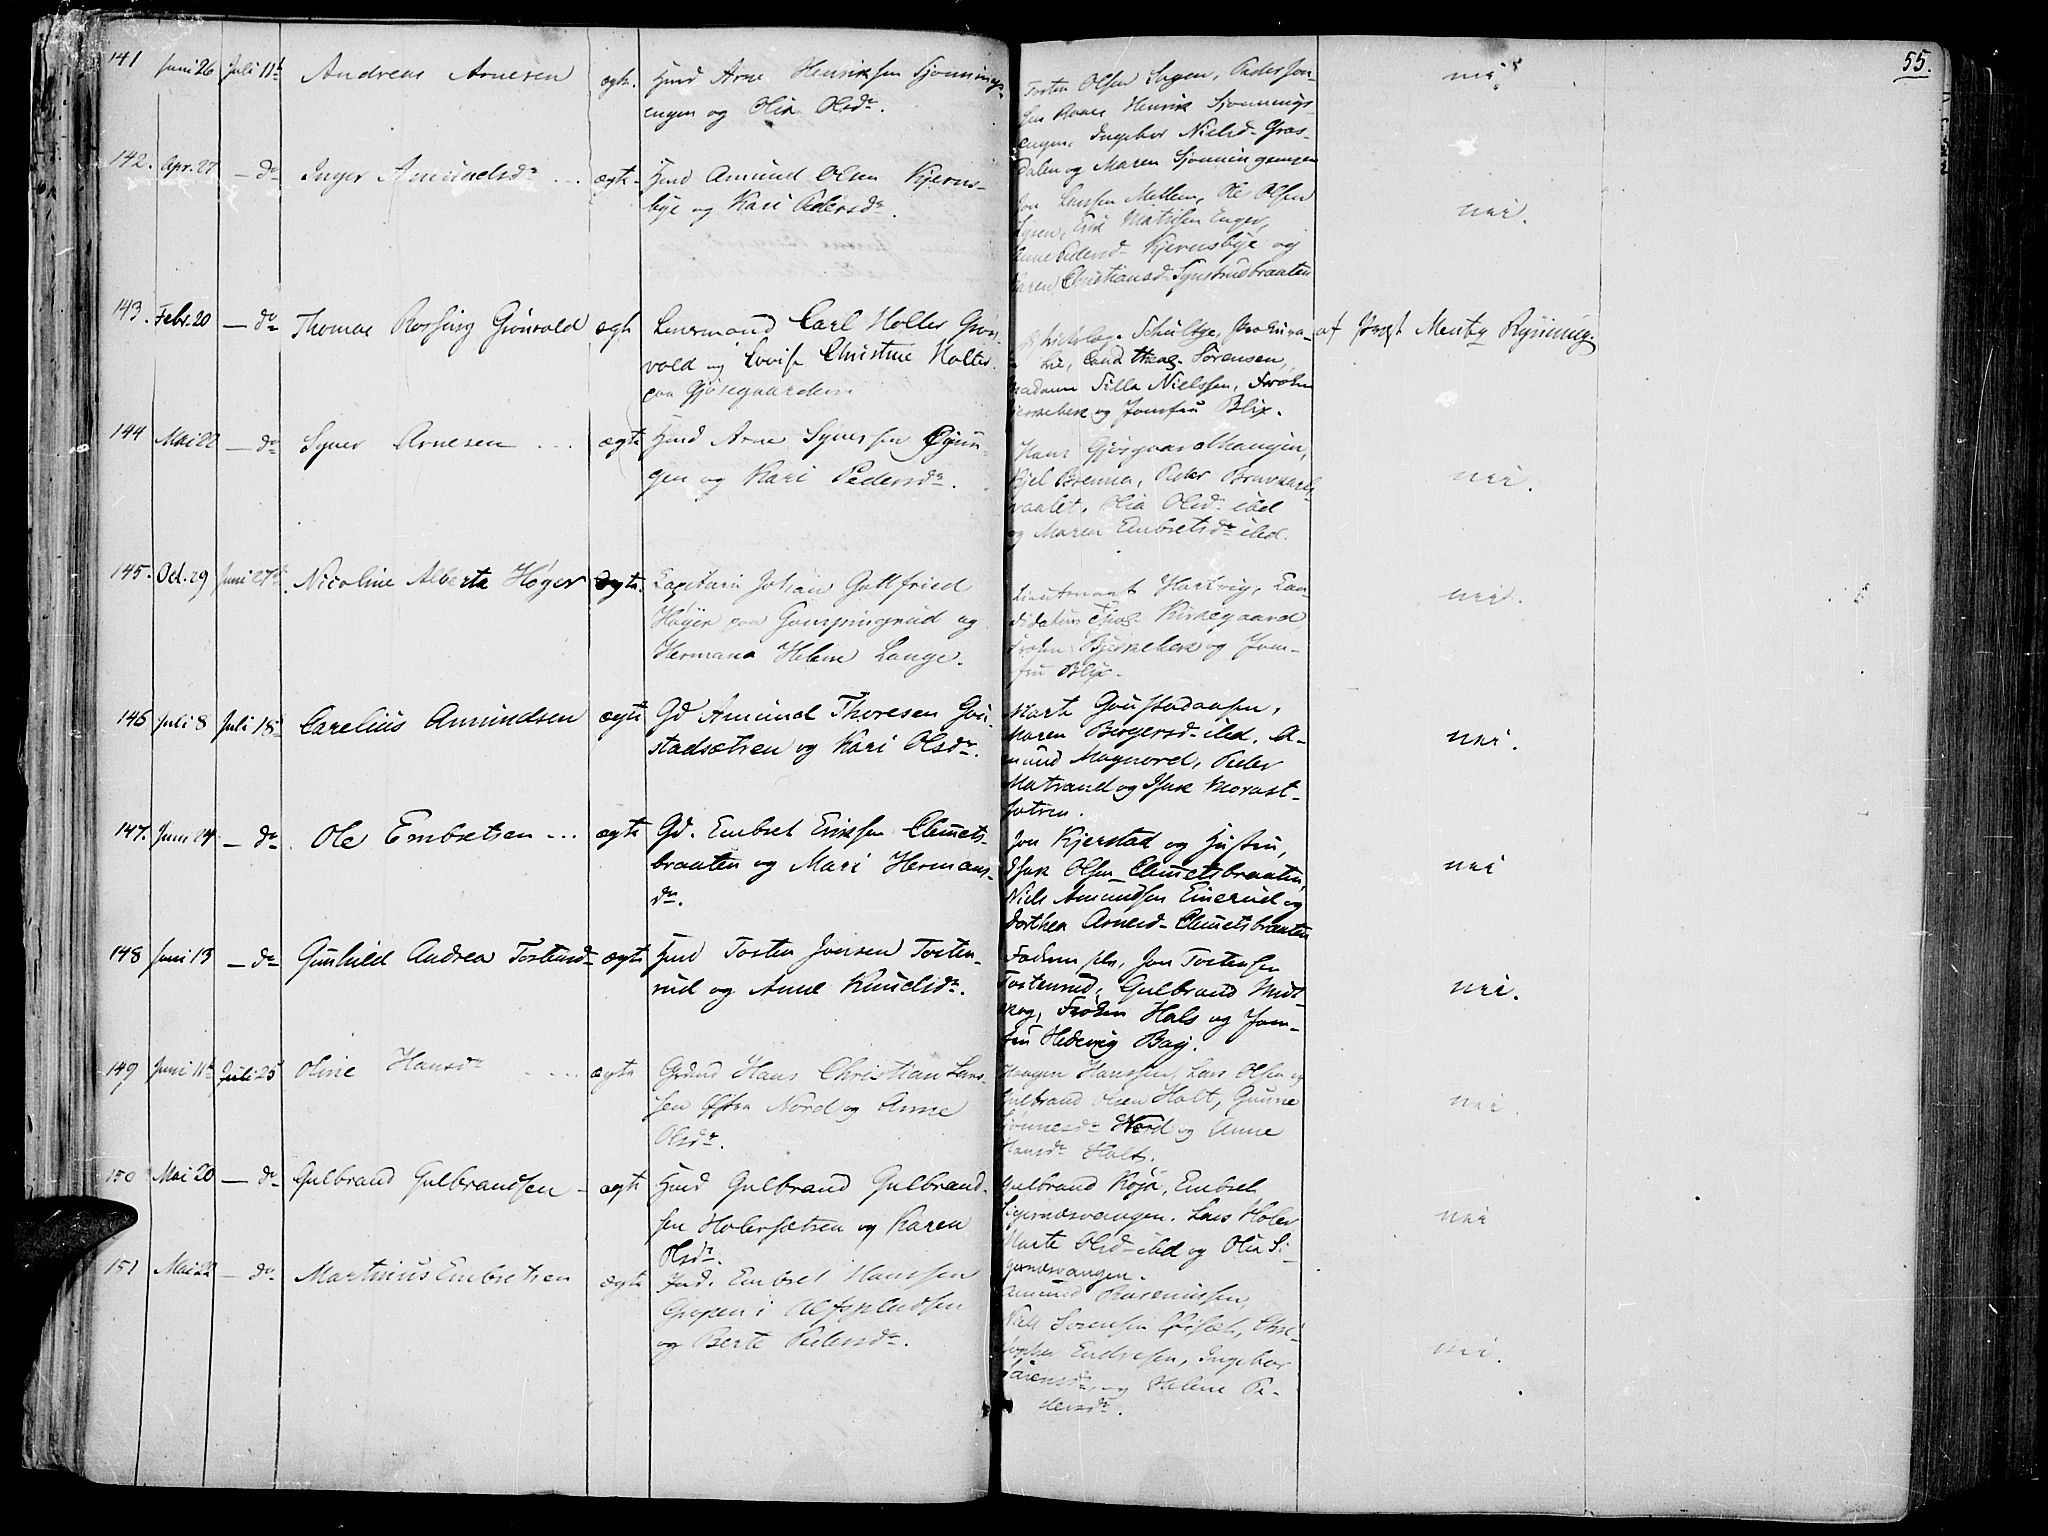 55.
141 Juni 26 Juli 11t Andreas Arnesen ægte. Huusd Arne Henriksen Sjonnings-
engen og Olia Olsdr.
Torsten Olsen Engen, Peder
Henrik Sjonnings-
engen, Ingebor Nielsd Gras-
dalen og Maren Sjonningengen
nei
142. Apr. 27 — do Inger Amundsdr ... ægte Huusd Amund Olsen Kjerns-
bye og Kari Pedersdr.
Jon Larssen Mellem, Ole Olsen
Erik Matisen Enger,
Anne Pedersd Kjernsbye og
Karen Christiansd Synstrudbraaten
nei.
143. Febr. 20 — do Thomas Rossing Grönvold ægte Lensmand Carl Holter Grön-
vold og Lovise Christine Holter
paa Gjøsegaarden
Schultze, Prokura-
tor, Cand. theol. Sörensen,
Madame Silla Nielssen, Frøken
Bjerkebek og Jomfru Blix.
af Præst Mentz Rynning.
144 Mai 22 — do Syver Arnesen ... ægte Huusd Arne Syversen
gen og Kari Pedersdr.
Hans Gjøsgaardhaugen,
Kjel Brenna, Peder
Olia Olsd ibd
og Maren Embretsdr ibd.
nei.
145. Oct. 29 Juni 27t Nicoline Alberta Høyer ægte. Capitain Johan Gottfried
Høyer paa Gompingrud og
Hermana Helene Lange.
Lieutenant Hartvig, Can-
didatus Theol Kirkegaard,
Frøken Bjerkebek og Jom-
fru Blix.
nei.
146 Juli 8 Juli 18d Carelius Amundsen ægte Gd Amund Thoresen Gou-
stadsætren og Kari Olsdr.
Marte Goustadsæren,
Maren Børgersd ibd, A-
mund Magnord, Peder
Matrand og Isak Morast-
sætren.
nei.
147. Juni 14 — do Ole Embretsen ... ægte Gd. Embret Eriksen Clemets-
braaten og Mari Hermans-
dr.
Jon Kjerstad og Hustru,
Isak Olsen Clemetsbraaten,
Niels Amundsen Einerud og
Dorthea Arnesd Clemetsbraaten
nei
148 Juni 13 — do Gunhild Andrea Tostensd ægte Huusd Tosten Jonsen Tosten-
rud og Anne Knudsdr.
Faderen selv, Jon Tostensen
Tostenrud, Gulbrand Midt-
skog, Frøken Hals og Jom-
fru Hedevig Bay.
nei.
149 Juni 11te Juli 25d Oline Hansdr ... ægte Grdmd Hans Christian Lars-
sen Nord og Anne
Olsdr.
Haagen Hanssen, Lars Olsen og
Gulbrand Olsen Holt, Gunne
Nord og Anne
Hansdr Holt.
nei.
150 Mai 20 — do Gulbrand Gulbrandsen - ægte Huusd Gulbrand Gulbrand-
sen Holersætren og Karen
Olsdr.
Gulbrand Røja, Embret
Sigernæsvangen, Lars Holer
Marte Olsd ibd og Olia Si-
gernæsvangen.
nei
151 Mai 22 — do Martinus Embretsen ægte Ind. Embret Hanssen
i
og Berte Pedersdr.
Amund Rasmussen,
Niels Sørensen Chri-
stopher Endresen, Ingebor
Sørensdr og Helene Pe-
dersdr.
nei.